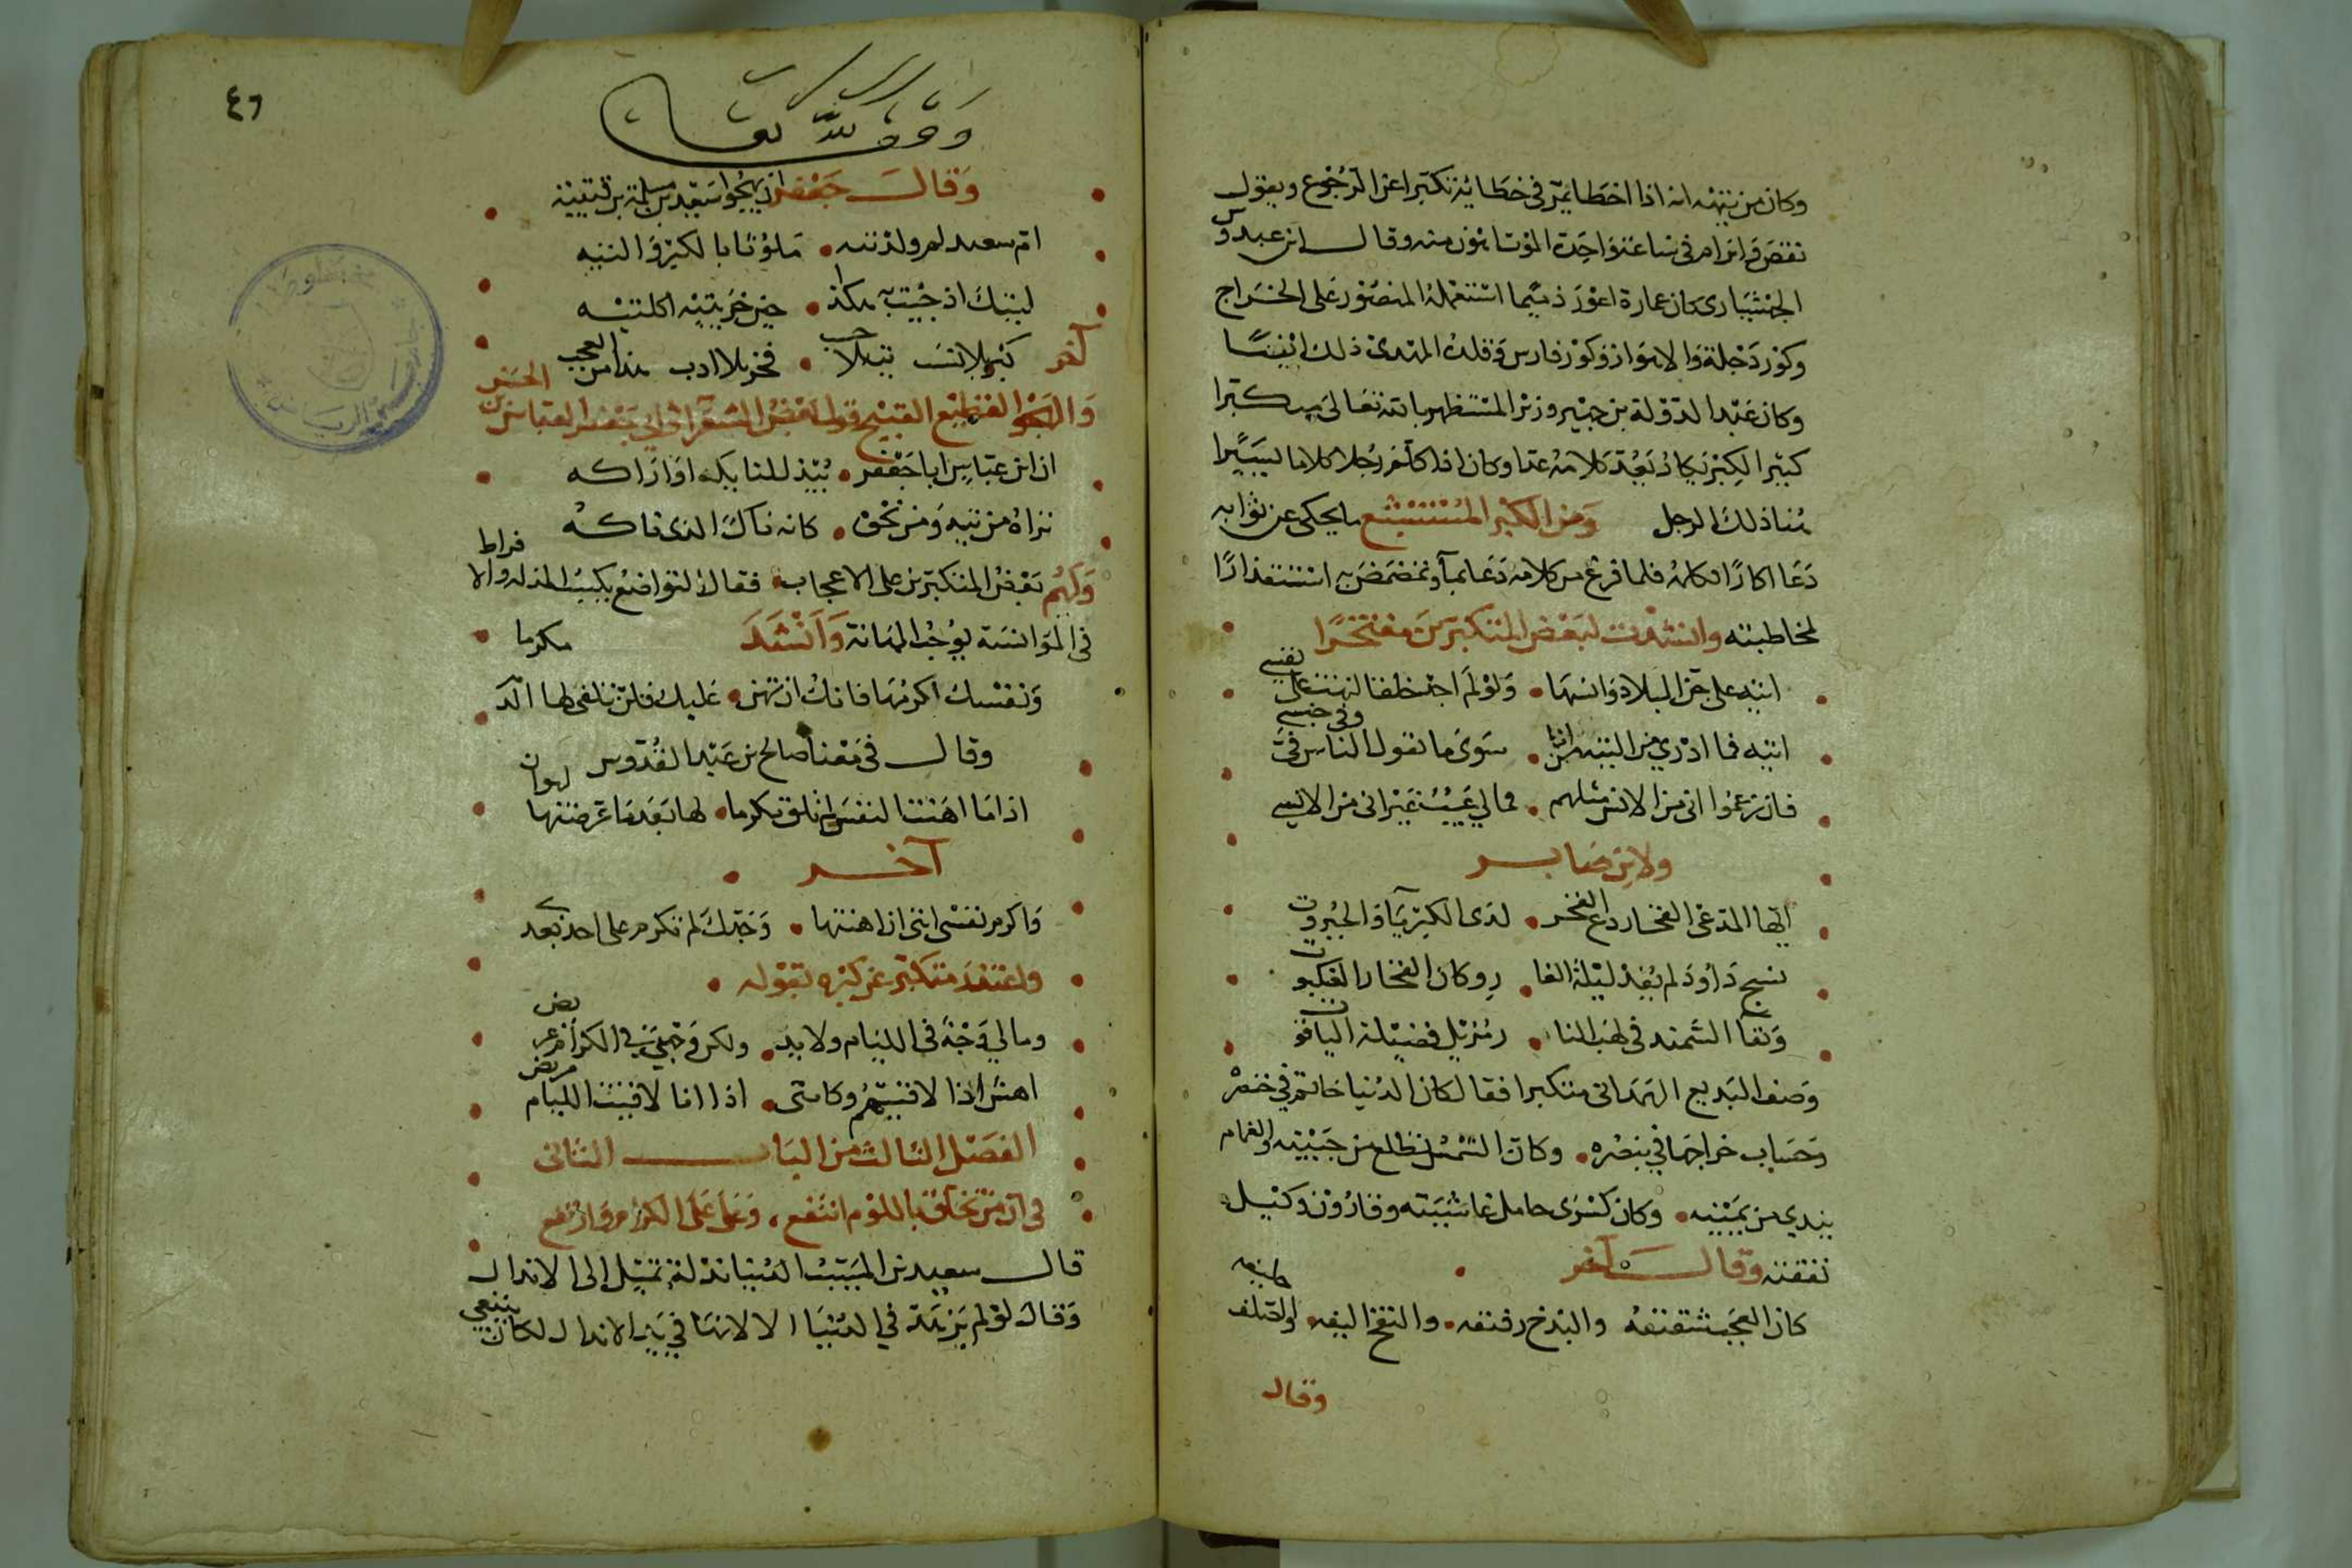 وكان من تيهه انه اذا اخطا يمر في خطائه تكبرا عن الرجوع ويقول
نقض وابرام في ساعة واحدة الموت اهون منه وقال ابن عبدوس
الجهشياري كان عمارة اعور ذميما استعمله المنصور على الخراج
وكور دجلة والاهواز وكور فارس وقلده المهدي ذلك ايضا
وكان عبد الدولة بن جهير وزير المستظهر بالله تعالى كبيرا
كثير الكبر يكاد يعد كلامه عدا وكان اذا كلم رجلا كلاما يسيرا
هنا ذلك الرجل ومن الكبر المستبشع ما يحكى عن ثوابه
دعا اكارا فكلمه فلما فرغ من كلامه دعا بماء وتمضمض به استقذارا
لمخاطبته وانشدت لبعض المتكبرين مفتخرا
اتيه على جن البلاد وانسها • ولو لم اجد خلقا لتهت على نفسي
اتيه فما ادري من التيه من انا • سوى ما تقول الناس في وفي جنسي
فان زعموا اني من الانس مثلهم • فما لي عيب غير اني من الانس
ولابن صابر
ايها المدعي الفخار دع الفخر • لذي الكبرياء والجبروت
نسج داود لم يفد ليلة الغا • ر وكان الفخار للعنكبوت
وبقا السمند في لهب النا • ر مزيل فضيلة الياقوت
وصف البديع الهمداني متكبرا فقال كان الدنيا خاتم في خنصره
وحساب خراجها في بنصره • وكان الشمس تطلع من جبينه والغمام
يندي من يمينه • وكان كسرى حامل غاشيته وقارون وكيل
نفقته وقال آخر
كان العجب شقيقه والبذخ رفيقه • والنفخ اليفه • والصلف حليفه
وقال
٤٦
وقف لله تعالى
وقال جعفر يهجوا سعيد بن مسلم بن قتيبة
ام سعيد لم ولدتيه • ملوثا بالكبر والتيه
ليتك اذ جيت به هكذا • حين خريتيه اكلتيه
آخر كبر بلا نسب تيه بلا حسب • فخر بلا ادب هذا من العجب
والهجو الفظيع القبيح قول بعض الشعراء في ابي جعفر العباس بن الحسن
ان ابن عباس ابا جعفر • يبذل للنايك اوراكه
تراه من تيه ومن نخوة • كانه ناك الذي ناكه
وليم بعض المتكبرين على الاعجاب • فقال التواضع يكسب المذلة والافراط
في الموانسة يوجب المهانة وانشد
ونفسك اكرمها فانك ان تهن • عليك فلن تلقى لها الدهر مكرما
وقال في معناه صالح بن عبد القدوس
اذا ما اهنت النفس لم تلق مكرما • لها بعد ما عرضتها لهوان
آخر
واكرم نفسي انني ان اهنتها • وحقك لم تكرم على احد بعدي
واعتذر متكبر عن كبره بقوله •
وما لي وجه في الليام ولا يد • ولكن وجهي في الكرام عريض
اهش اذا لاقيتهم وكانني • اذا انا لاقيت الليام مريض
الفصل الثالث من الباب الثاني
في ان من تخلق باللوم انتفع ، وعلا على الكرام وارتفع
قال سعيد بن المسيب الدنيا نذلة تميل الى الانذال
وقال لو لم يزهد في الدنيا الا لانها في يد الانذال لكان ينبغي